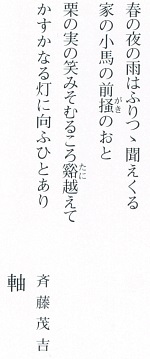 春の夜の雨はふりつゝ聞えくる
家の小馬の前掻のおと
がき
栗の実の笑みそむるころ谿越えて
たに
かすかなる灯に向ふひとあり
斉藤茂吉
軸